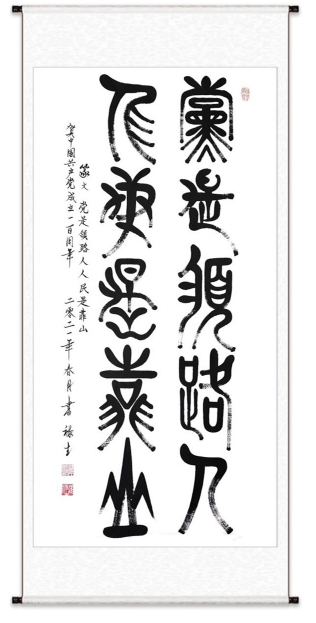 黨是領路人
人民是靠山
篆文 党是领路人人民是靠山
贺中國共产党成立一百周年 二零二一年春月書